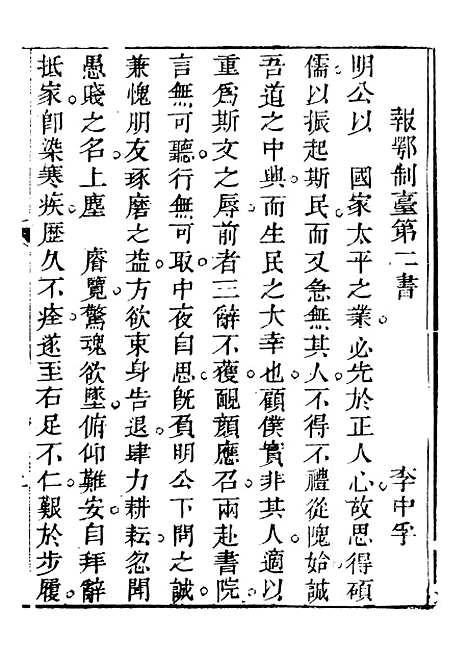 報鄂制臺第二書 李中孚
明公以 國家太平之業必先於正人心故思得碩
儒以振起斯民而又急無其人不得不禮從隗始誠
吾道之中興而生民之大幸也顧僕實非其人適以
重爲斯文之辱前者三辭不獲靦顏應召兩赴書院
言無可聽行無可取中夜自思旣負明公下問之誠
兼愧朋友琢磨之益方欲束身告退肆力耕耘忽聞
愚賤之名上塵 睿覽驚魂欲墜俯仰難安自拜辭
抵家卽染寒疾歷久不痊遂至右足不仁艱於步履